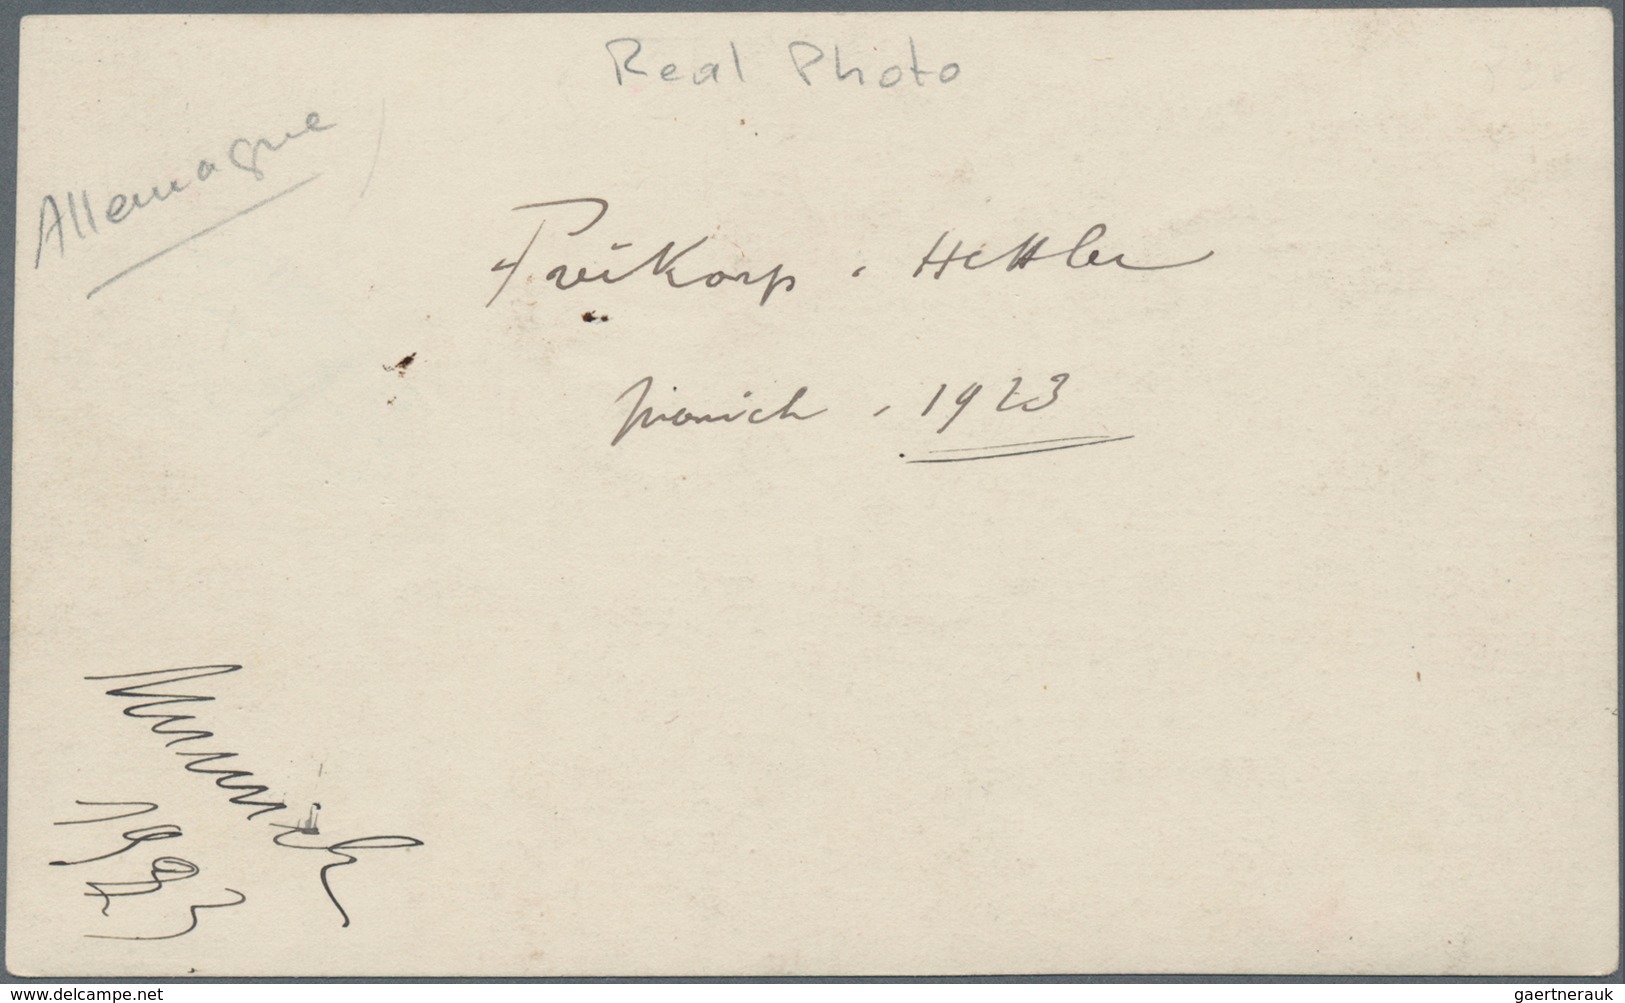 Real Photo
Allemagne
Freikorp . Hettler
Munich . 1923
Munnich
1923
www.delcampe.net
gaertnerauk